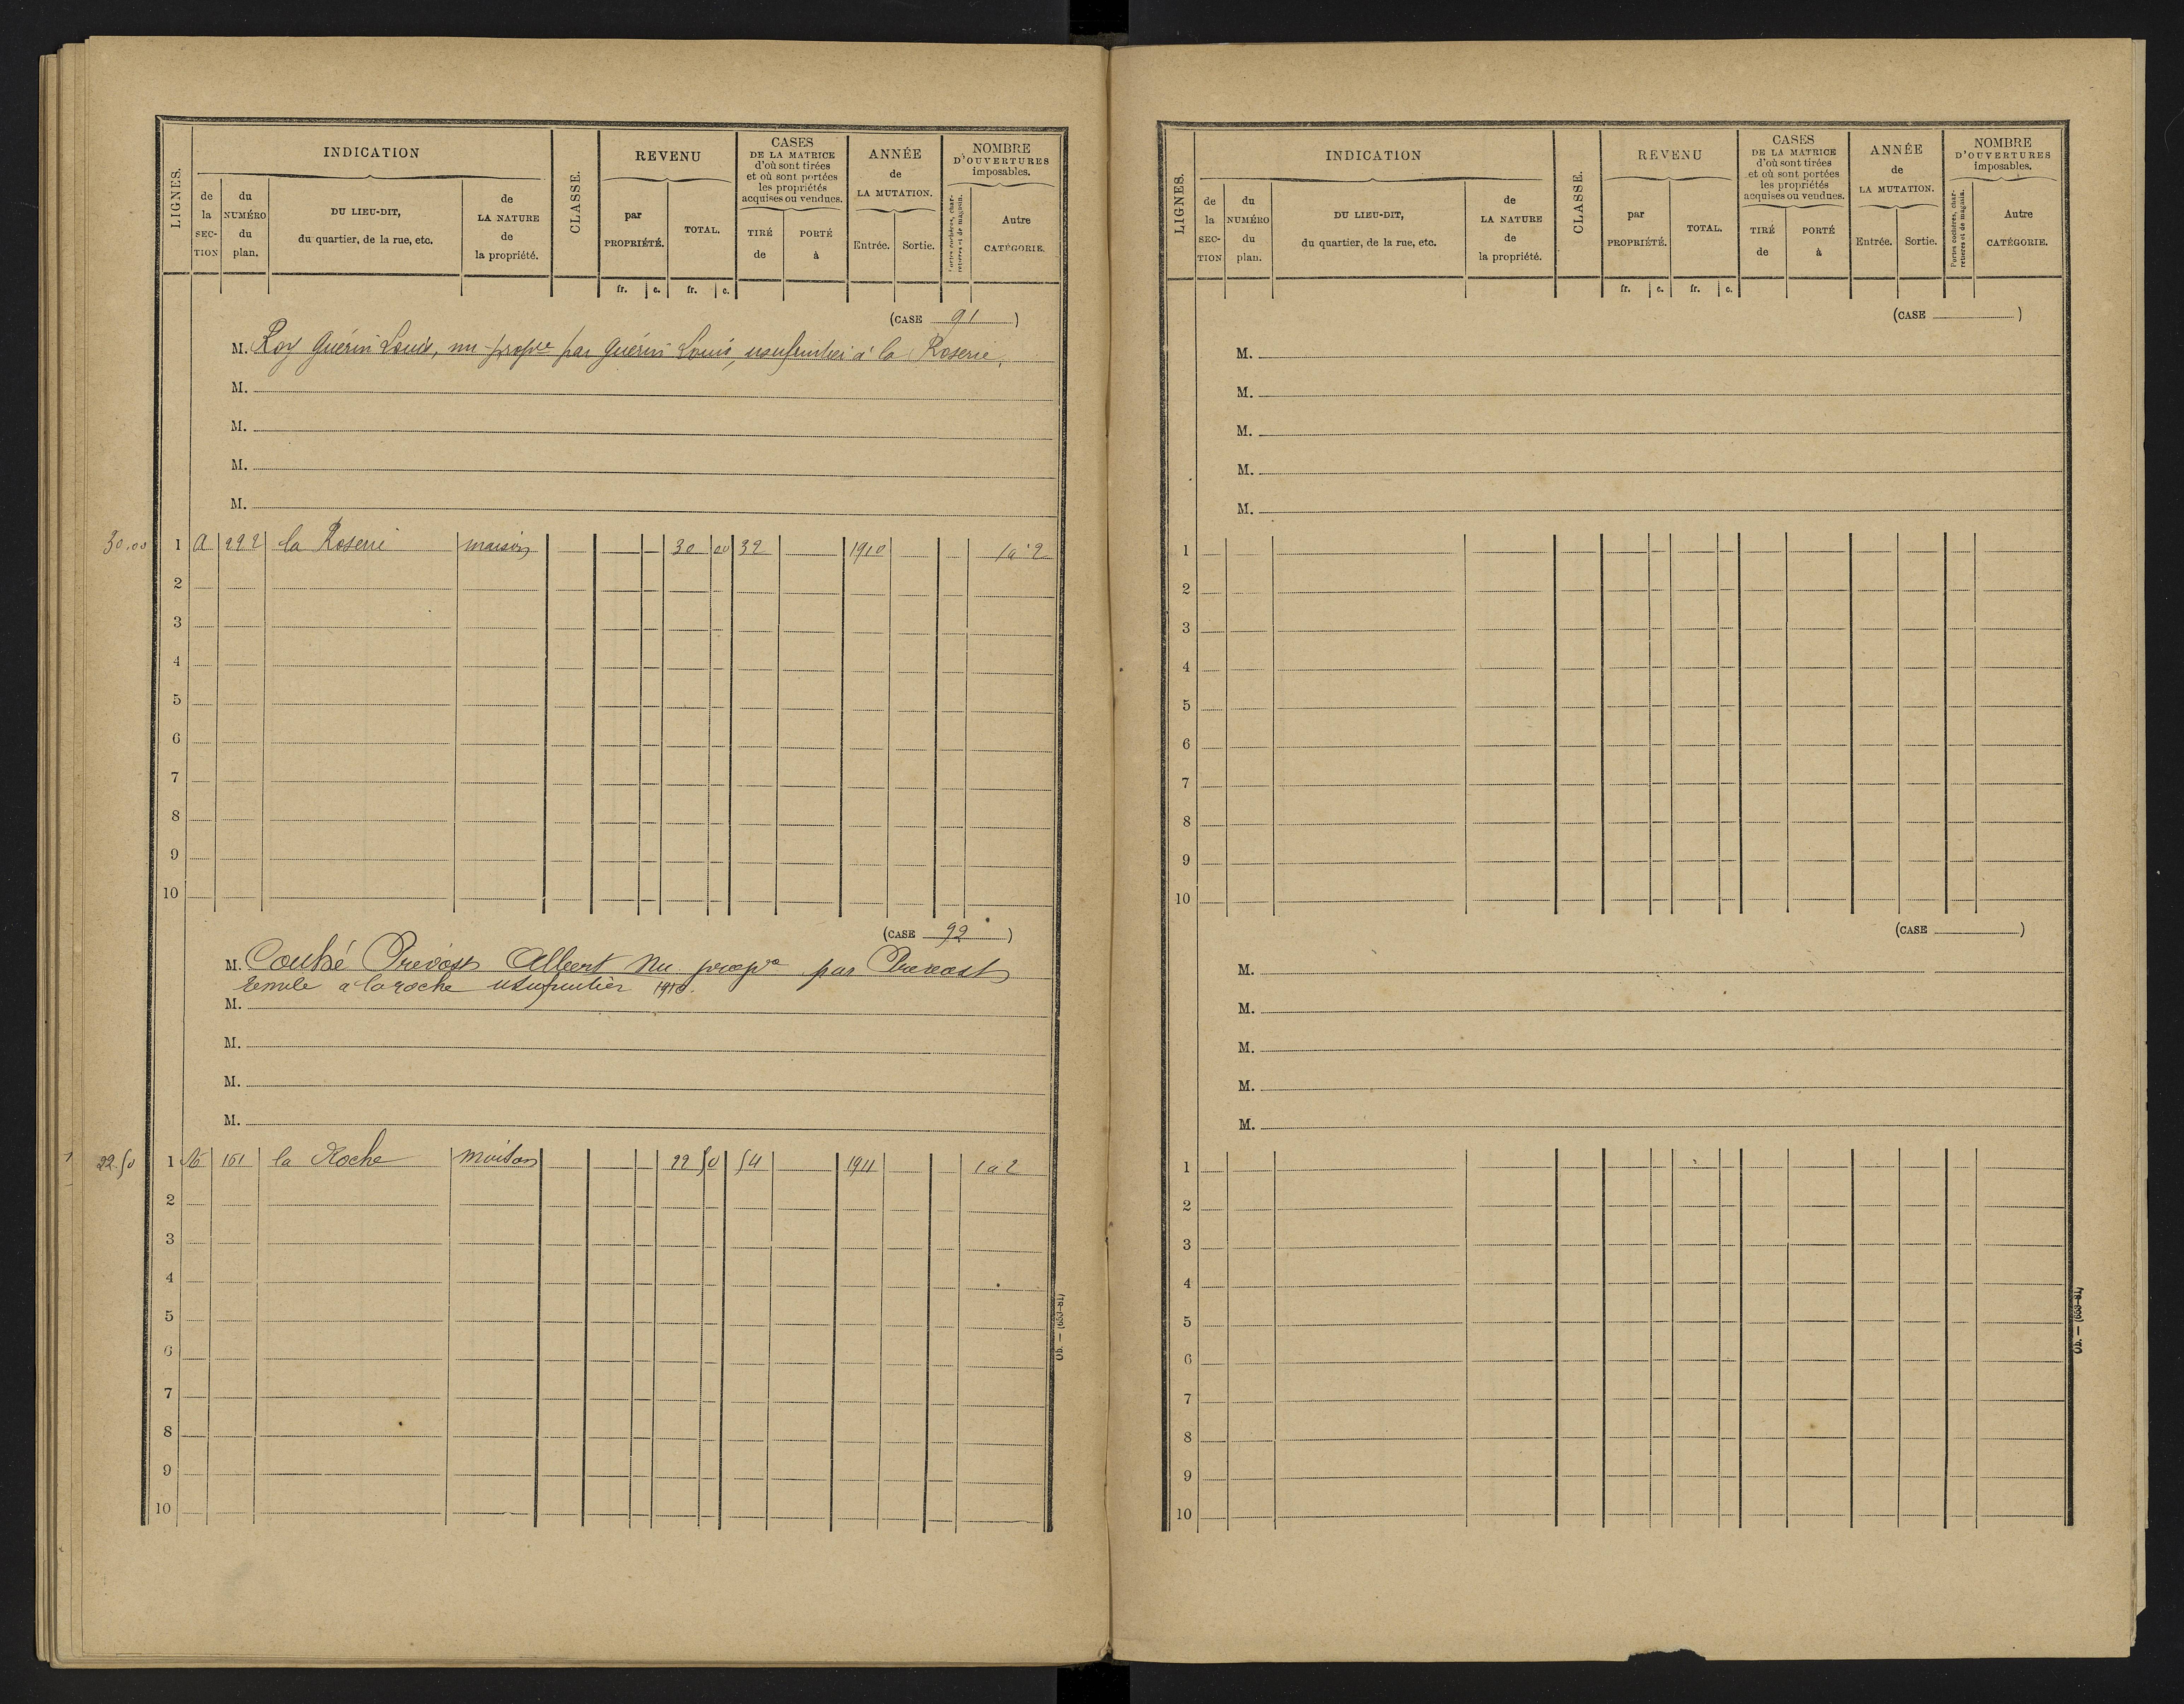 LIGNES.
INDICATION
de la SECTION
du NUMÉRO du plan.
DU LIEU-DIT, du quartier, de la rue, etc.
de LA NATURE de la propriété.
CLASSE.
REVENU
par PROPRIÉTÉ.
TOTAL.
CASES DE LA MATRICE d'où sont tirées et où sont portées les propriétés acquises ou vendues.
TIRÉ de
PORTÉ à
ANNÉE de LA MUTATION.
Entrée.
Sortie.
NOMBRE D'OUVERTURES imposables.
Portes cochères, charretières et de magasin.
Autre CATÉGORIE.
fr. c. fr. c.
(CASE 91)
M. Roy Guérin Louis, nu propre par Guérin Louis, usufruitier à la Roserie,
M.
M.
M.
M.
30.00 1 A 222 la Roserie maison 30 00 32 1910 1 à 2
2
3
4
5
6
7
8
9
10
(CASE 92)
M. Prevost Albert Nu propre par Prevost
à la roche usufruitier 1910.
M.
M.
M.
M.
22.50 1 161 la Roche maison 22 50 54 1911 1 a 2
2
3
4
5
6
7
8
9
10
Ob. — (653-81)
LIGNES.
INDICATION
de la SECTION
du NUMÉRO du plan.
DU LIEU-DIT, du quartier, de la rue, etc.
de LA NATURE de la propriété.
CLASSE.
REVENU
par PROPRIÉTÉ.
TOTAL.
CASES DE LA MATRICE d'où sont tirées et où sont portées les propriétés acquises ou vendues.
TIRÉ de
PORTÉ à
ANNÉE de LA MUTATION.
Entrée.
Sortie.
NOMBRE D'OUVERTURES imposables.
Portes cochères, charretières et de magasin.
Autre CATÉGORIE.
fr. c. fr. c.
(CASE )
M.
M.
M.
M.
M.
1
2
3
4
5
6
7
8
9
10
(CASE )
M.
M.
M.
M.
M.
1
2
3
4
5
6
7
8
9
10
Ob. — (653-81)